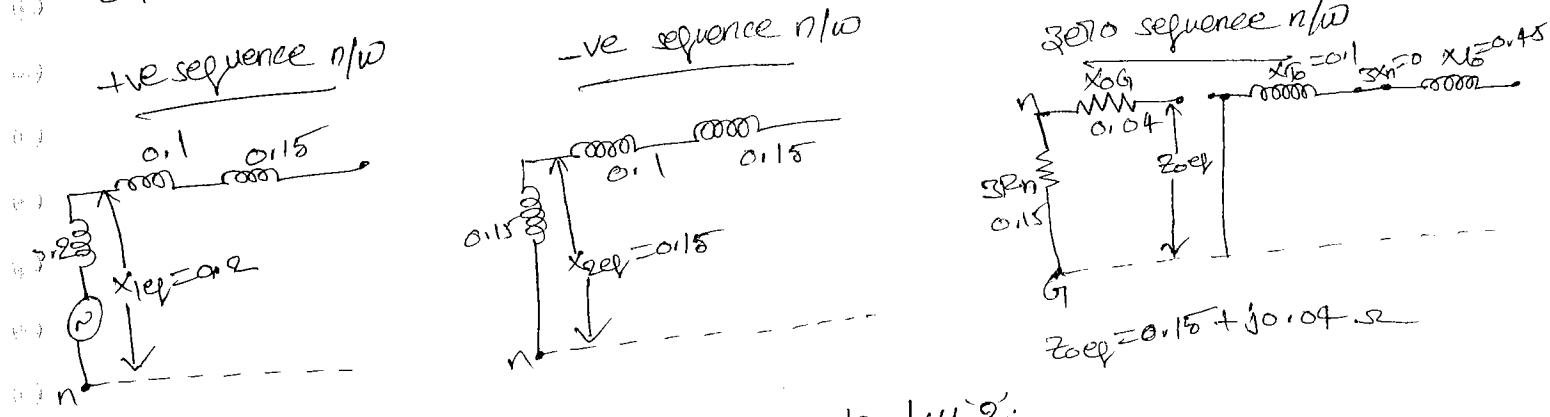 +ve sequence n/w
0.1 0.15
0.2
X1eq=0.2
n
-ve sequence n/w
0.1 0.15
0.15
X2eq=0.15
n
zero sequence n/w
XT0=0.1 3Xn=0 Xl0=0.45
n X0G
0.04
Z0eq
3Rn
0.15
G
Z0eq=0.15+j0.04 Ω